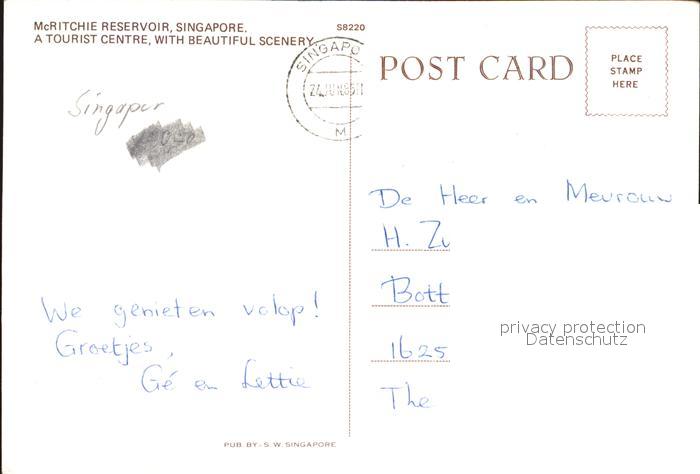 McRITCHIE RESERVOIR, SINGAPORE.
S8220
A TOURIST CENTRE, WITH BEAUTIFUL SCENERY.
SINGAPO
M
POST CARD
PLACE
STAMP
HERE
Singapur
De Heer en Mevrouw
H. Zu
Bott
1625
The
We genieten volop!
Groetjes,
Gé en Lettie
privacy protection
Datenschutz
PUB. BY:- S. W. SINGAPORE